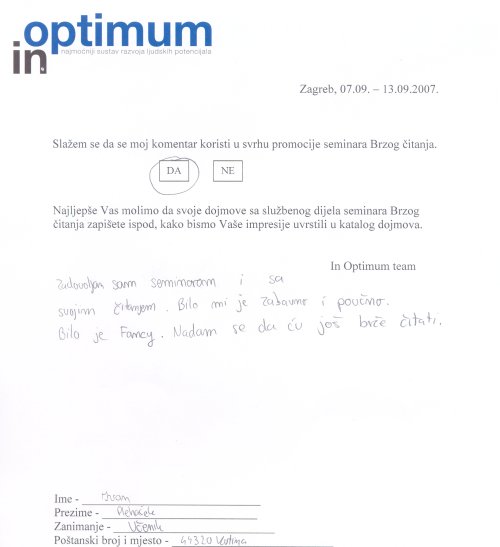 in optimum
najmoćniji sustav razvoja ljudskih potencijala
Zagreb, 07.09. – 13.09.2007.
Slažem se da se moj komentar koristi u svrhu promocije seminara Brzog čitanja.
DA NE
Najljepše Vas molimo da svoje dojmove sa službenog dijela seminara Brzog
čitanja zapišete ispod, kako bismo Vaše impresije uvrstili u katalog dojmova.
In Optimum team
Zadovoljan sam seminarom i sa
svojim čitanjem. Bilo mi je zabavno i poučno.
Bilo je Fancy. Nadam se da ću još brže čitati.
Ime - Ivan
Prezime -
Zanimanje - Učenik
Poštanski broj i mjesto - 44320 Kutina